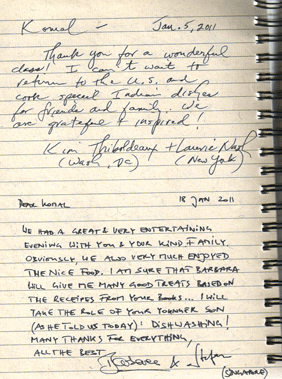 Komal — Jan. 5, 2011
Thank you for a wonderful
class! I can't want to
return to the U.S. and
cook special Indian dishes
for friends and family. We
are grateful & inspired!
Kim Thiboldeaux + Laurie
(Wash, DC) (New York)
DEAR KOMAL 18 JAN 2011
WE HAD A GREAT & VERY ENTERTAINING
EVENING WITH YOU & YOUR KIND FAMILY.
OBVIOUSLY, WE ALSO VERY MUCH ENJOYED
THE NICE FOOD. I AM SURE THAT BARBARA
WILL GIVE ME MANY GOOD TREATS BASED ON
THE RECEIPES FROM YOUR BOOKS... I WILL
TAKE THE ROLE OF YOUR YOUNGER SON
(AS HE TOLD US TODAY): DISHWASHING!
MANY THANKS FOR EVERYTHING,
ALL THE BEST
Barbara & Stefan
(SINGAPORE)